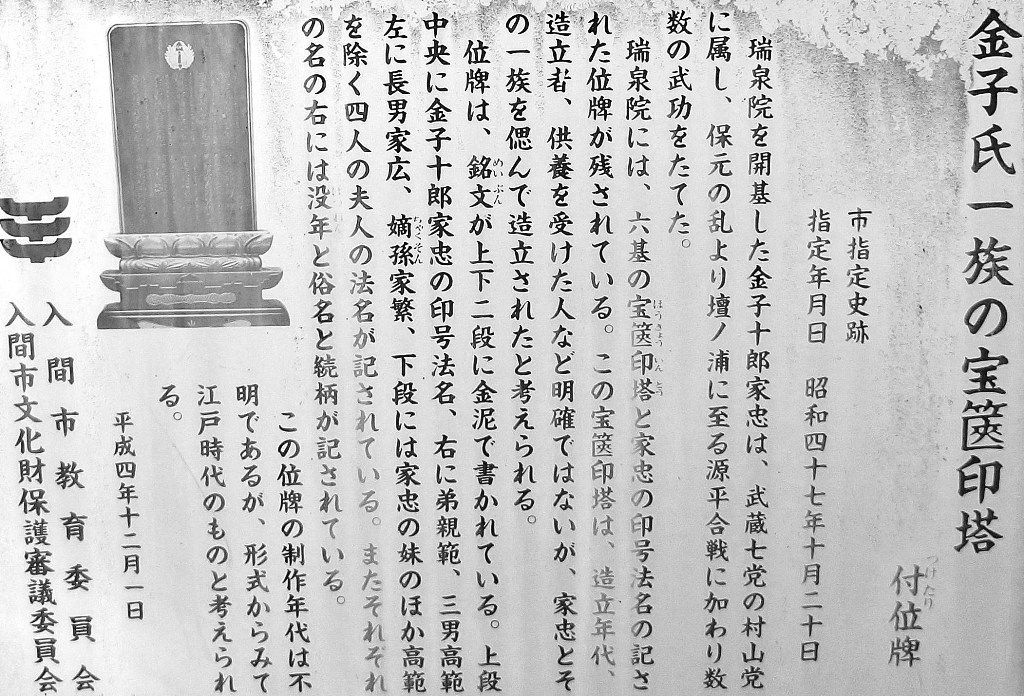 金子氏一族の宝篋印塔
付位牌
つけたり
市指定史跡
指定年月日 昭和四十七年十月二十日
瑞泉院を開基した金子十郎家忠は、武蔵七党の村山党
に属し、保元の乱より壇ノ浦に至る源平合戦に加わり数
数の武功をたてた。
瑞泉院には、六基の宝篋印塔と家忠の印号法名の記さ
ほうきょういんとう
れた位牌が残されている。この宝篋印塔は、造立年代、
造立者、供養を受けた人など明確ではないが、家忠とそ
の一族を偲んで造立されたと考えられる。
位牌は、銘文が上下二段に金泥で書かれている。上段
めいぶん
中央に金子十郎家忠の印号法名、右に弟親範、三男高範
左に長男家広、嫡孫家繁、下段には家忠の妹のほか高範
を除く四人の夫人の法名が記されている。またそれぞれ
の名の右には没年と俗名と続柄が記されている。
この位牌の制作年代は不
明であるが、形式からみて
江戸時代のものと考えられ
る。
平成四年十二月一日
入間市教育委員会
入間市文化財保護審議委員会